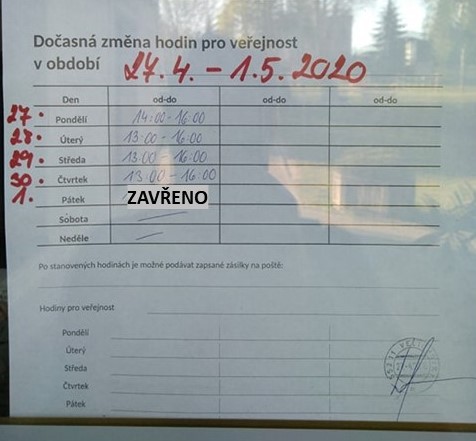 Dočasná změna hodin pro veřejnost
v období 27. 4. - 1. 5. 2020
Den od-do od-do od-do
27. Pondělí 14:00 - 16:00
28. Úterý 13:00 - 16:00
29. Středa 13:00 - 16:00
30. Čtvrtek 13:00 - 16:00
1. Pátek ZAVŘENO
Sobota —
Neděle —
Po stanovených hodinách je možné podávat zapsané zásilky na poště:
Hodiny pro veřejnost
Pondělí
Úterý
Středa
Čtvrtek
Pátek